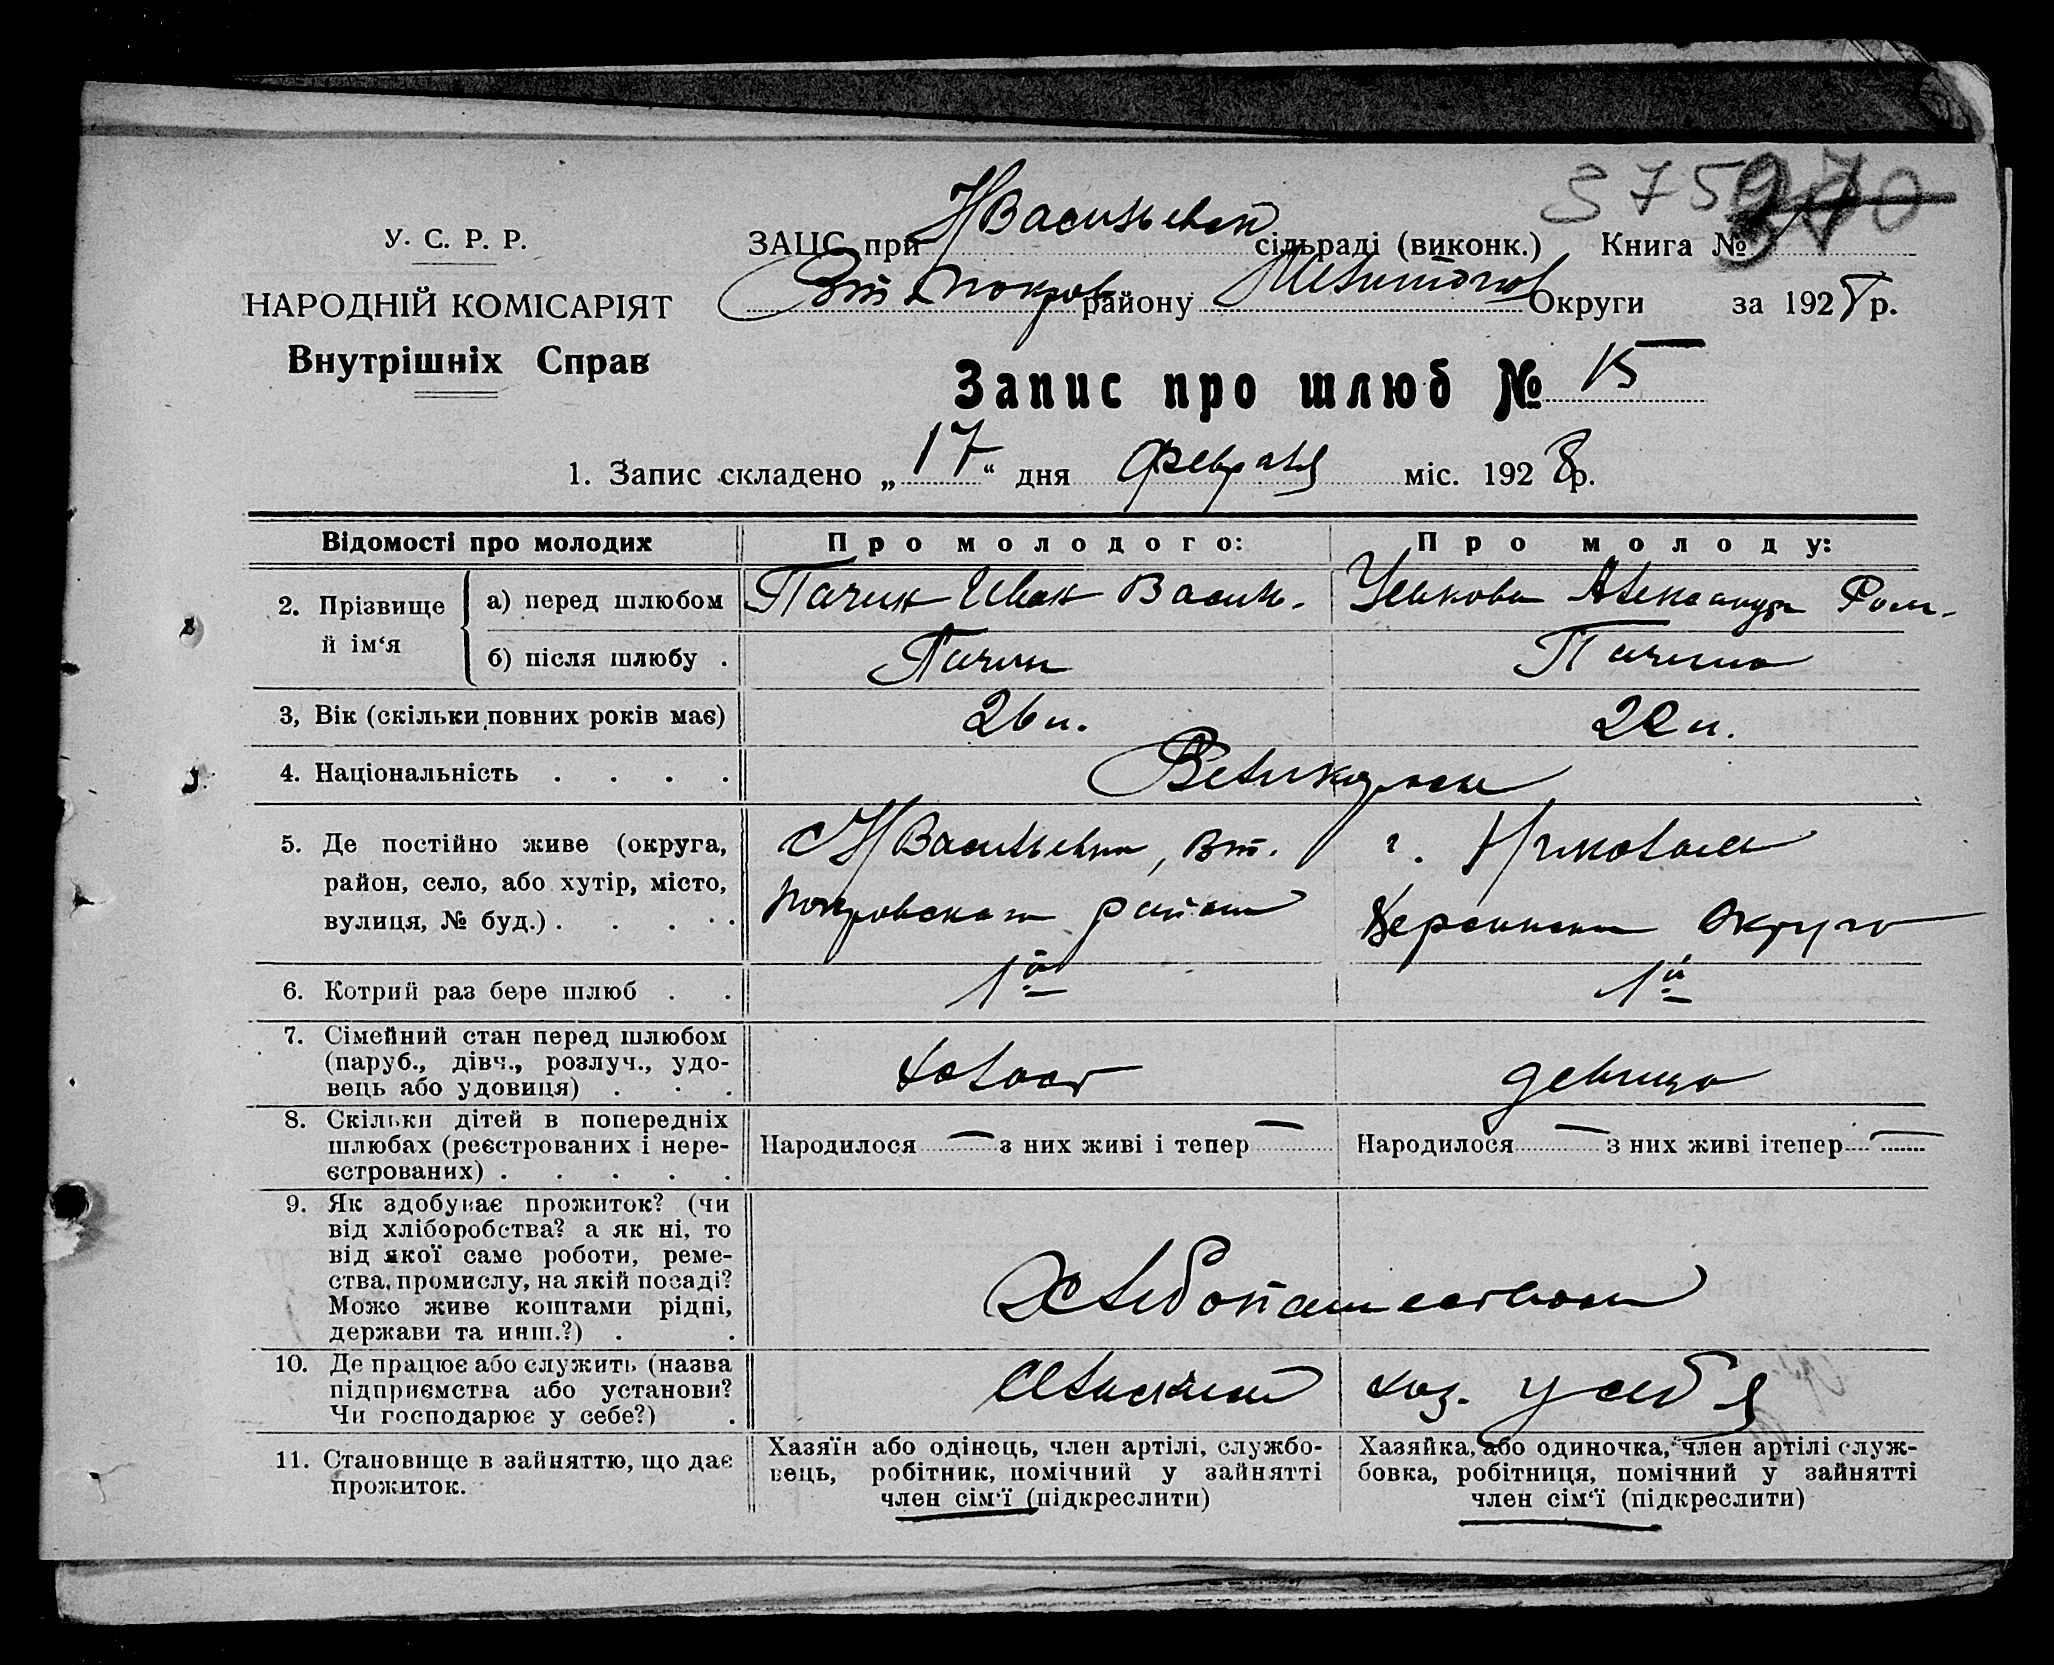 375
У. С. Р. Р.
НАРОДНІЙ КОМІСАРІЯТ
Внутрішніх Справ
ЗАЦС при НВасильевск сільраді (виконк.) Книга №
Вт Покров району Мелитопол Округи за 1928 р.
Запис про шлюб № 15
1. Запис складено „17“ дня февраля міс. 1928 р.
Відомості про молодих Про молодого: Про молоду:
2. Прізвище й ім‘я а) перед шлюбом Пачин Иван Васил. Александр Ром.
б) після шлюбу . Пачин Пачина
3, Вік (скільки повних років має) 26 л. 22 л.
4. Національність . . . . Великоросы
5. Де постійно живе (округа, район, село, або хутір, місто, вулиця, № буд.) . . . .
с НВасильевка, Вт.
Покровского района
г. Николаев
Херсонского Округа
6. Котрий раз бере шлюб . . 1й 1й
7. Сімейний стан перед шлюбом
(паруб., дівч., розлуч., удо-
вець або удовиця) . . . холост девица
8. Скільки дітей в попередніх
шлюбах (реєстрованих і нере-
єстрованих) . . . . . Народилося — з них живі і тепер — Народилося — з них живі ітепер —
9. Як здобуває прожиток? (чи
від хліборобства? а як ні, то
від якої саме роботи, реме-
ства, промислу, на якій посаді?
Може живе коштами рідні,
держави та инш.?) . .
Хлебопашеством
10. Де працює або служить (назва
підприємства або установи?
Чи господарює у себе?) .
хоз. у себя
11. Становище в зайняттю, що дає
прожиток.
Хазяїн або одінець, член артілі, службо-
вець, робітник, помічний у зайнятті
член сім‘ї (підкреслити)
Хазяйка, або одиночка, член артілі служ-
бовка, робітниця, помічний у зайнятті
член сім‘ї (підкреслити)